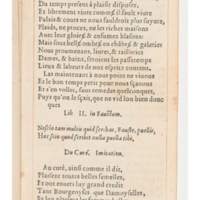 Du temps present à plaisir disposer,
Et librement viure comme il fault viure
Palais & cours ne nous fauldroit plus suyure,
Plaids, ne proces, ne les riches maisons
Auec leur gloire & enfumés blasons:
Mais soubz belle umbre en chambre & galeries
Nous pourmenans, liures, & railleries
Dames, & bains, seroient les passetemps
Lieux & labeurs de noz esprits contens.
Las maintenant à nous point ne viuons
Et le bon temps perir pour nous sçauons
Et s'en voller, sans remedes quelconques,
Puys qu'on le sçait, que ne vid lon bien donc
ques
Lib. II. in Faustum.
Nescio tam multis quid scribas, Fauste, puellis,
Hoc scio quod scribit nulla puella tibi.
Du Curé. Imitation.
Au curé, ainsi comme il dit,
Plaisent toutes belles femelles,
Et ont enuers luy grand credit
Tant Bourgeoyses que Damoyselles,